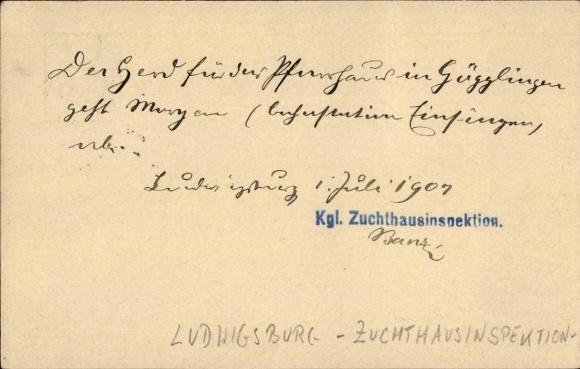 Der Herd für das Pfarrhaus in Göggligen
geht Morgen (Bahnstation Einsingen)
ab.
Ludwigsburg 1. Juli 1907
Kgl. Zuchthausinspektion.
LUDWIGSBURG - ZUCHTHAUSINSPEKTION-